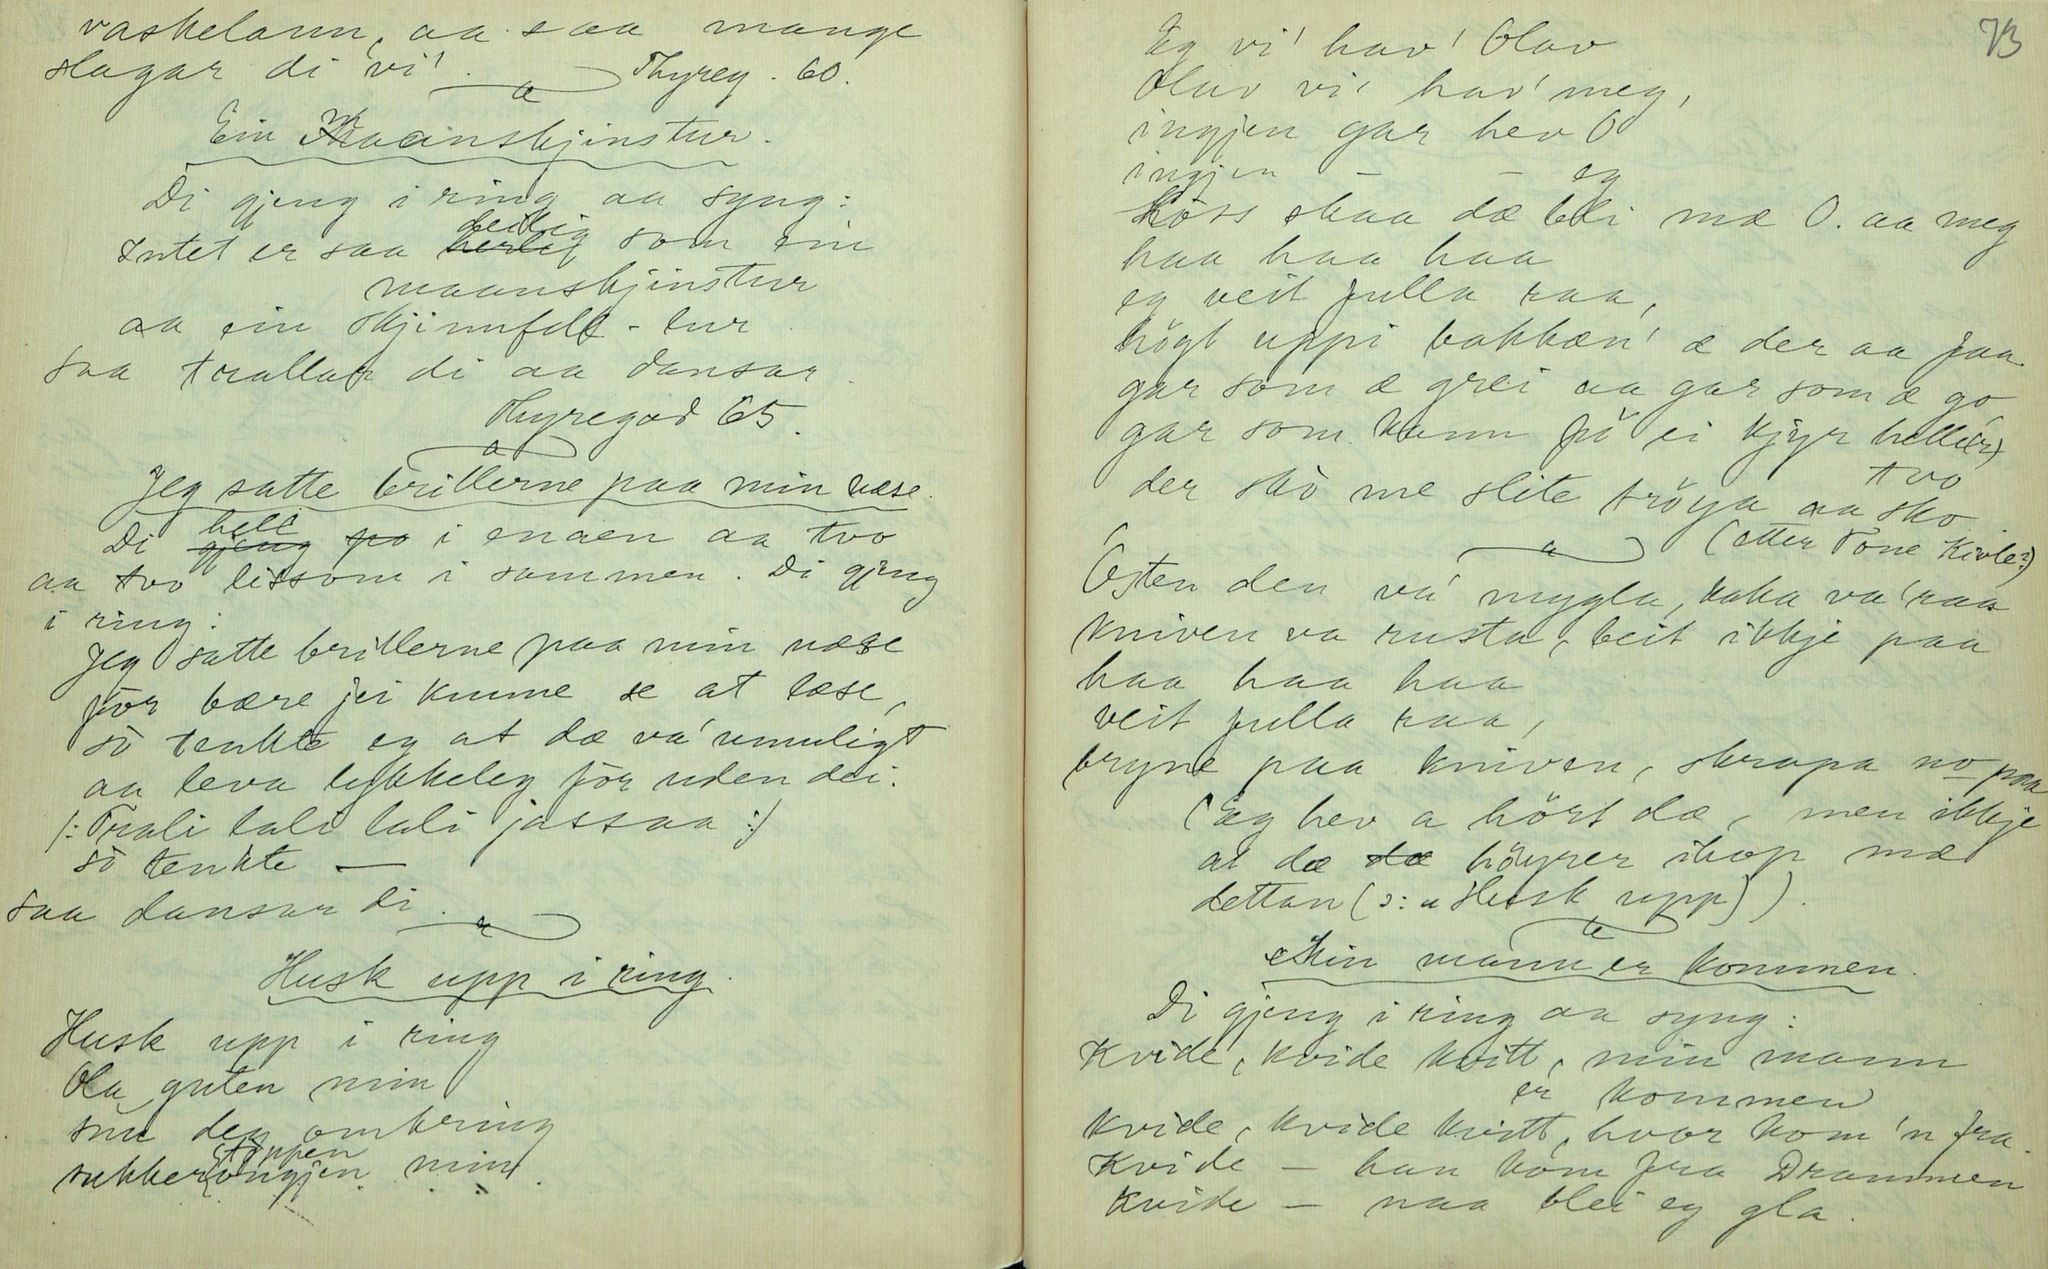 vaskelann, aa saa mange
slagar di vi'. Thyreg. 60.
Ein Maanskjinstur.
Di gjeng i ring aa syng:
deilig
Intet er saa herlig som ein
maanskjinstur
aa ein skjinnfell-tur
saa trallar di aa dansar.
Thyregod 65.
Jeg satte brillerne paa min næse.
hell
Di gjeng po i enden aa tvo
aa tvo lissom i sammen. Di gjeng
i ring:
Jeg satte brillerne paa min næse
for bære jei kunne se at læse,
så tenkte eg at dæ va' umuligt
aa leva lykkeleg før uden dei.
/: Trali lali lali jassaa :/
så tenkte —
saa dansar di.
Husk upp i ring.
Husk upp i ring
Ola guten min
snu deg omkring
toppen
sukkerongjen min.
73
Eg vi' hav' Olav
Olav vi' hav' meg,
ingjen gar hev O
ingjen — — eg
Høss skaa dæ bli mæ O. aa meg
haa haa haa
eg veit fulla raa,
høgt uppi bakkæn' æ der aa faa
gar som æ grei aa gar som æ go
gar som kann fø ei kjyr heller)
tvo
der skò me slite trøya aa sko
(etter Tone Kivle?)
Osten den va' mygla, kaka va' raa
kniven va rusta, beit ikkje paa
haa haa haa
veit fulla raa,
bryne paa kniven, skrapa no paa
(Eg hev a hört dæ, men ikkje
at dæ dæ höyrer ihop mæ
dettan (ɔ: "Husk upp)).
Min mann er kommen.
Di gjeng i ring aa syng:
Kvide, kvide kvitt, min mann
er kommen
kvide, kvide kvitt, hvor kom'n fra.
Kvide — han kom fra Drammen
Kvide — naa blei eg gla.